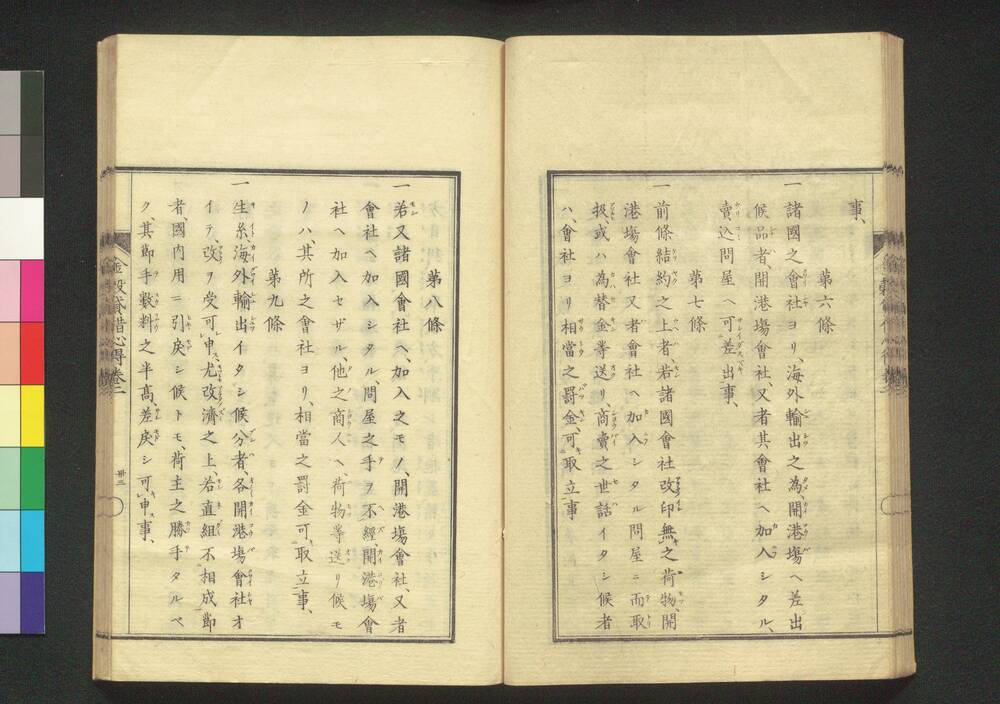 事、
第六條
一諸國之會社ヨリ、海外輸出之為、開港塲ヘ差出
候品者、開港塲會社、又者其會社ヘ加入シタル、
賣込問屋ヘ可差出事、
第七條
一前條結約之上者、若諸國會社改印無之荷物、開
港塲會社又者會社ヘ加入シタル問屋ニ而取
扱或ハ為替金等送リ、商賣之世話イタシ候者
ハ、會社ヨリ相當之罸金可取立事
第八條
一若又諸國會社ヘ、加入之モノ、開港塲會社、又者
會社ヘ加入シタル、問屋之手ヲ不經、開港塲會
社ヘ加入セザル、他之商人ヘ、荷物等送リ候モ
ノハ、其所之會社ヨリ、相當之罸金可取立事、
第九條
一生糸、海外輸出イタシ候分者、各開港塲會社オ
イテ、改ヲ受可申、尤改濟之上、若直組不相成節
者、國内用ニ引戻シ候トモ、荷主之勝手タルベ
ク、其節手數料之半髙、差戾シ可申事、
金穀貸借心得卷二
卅三